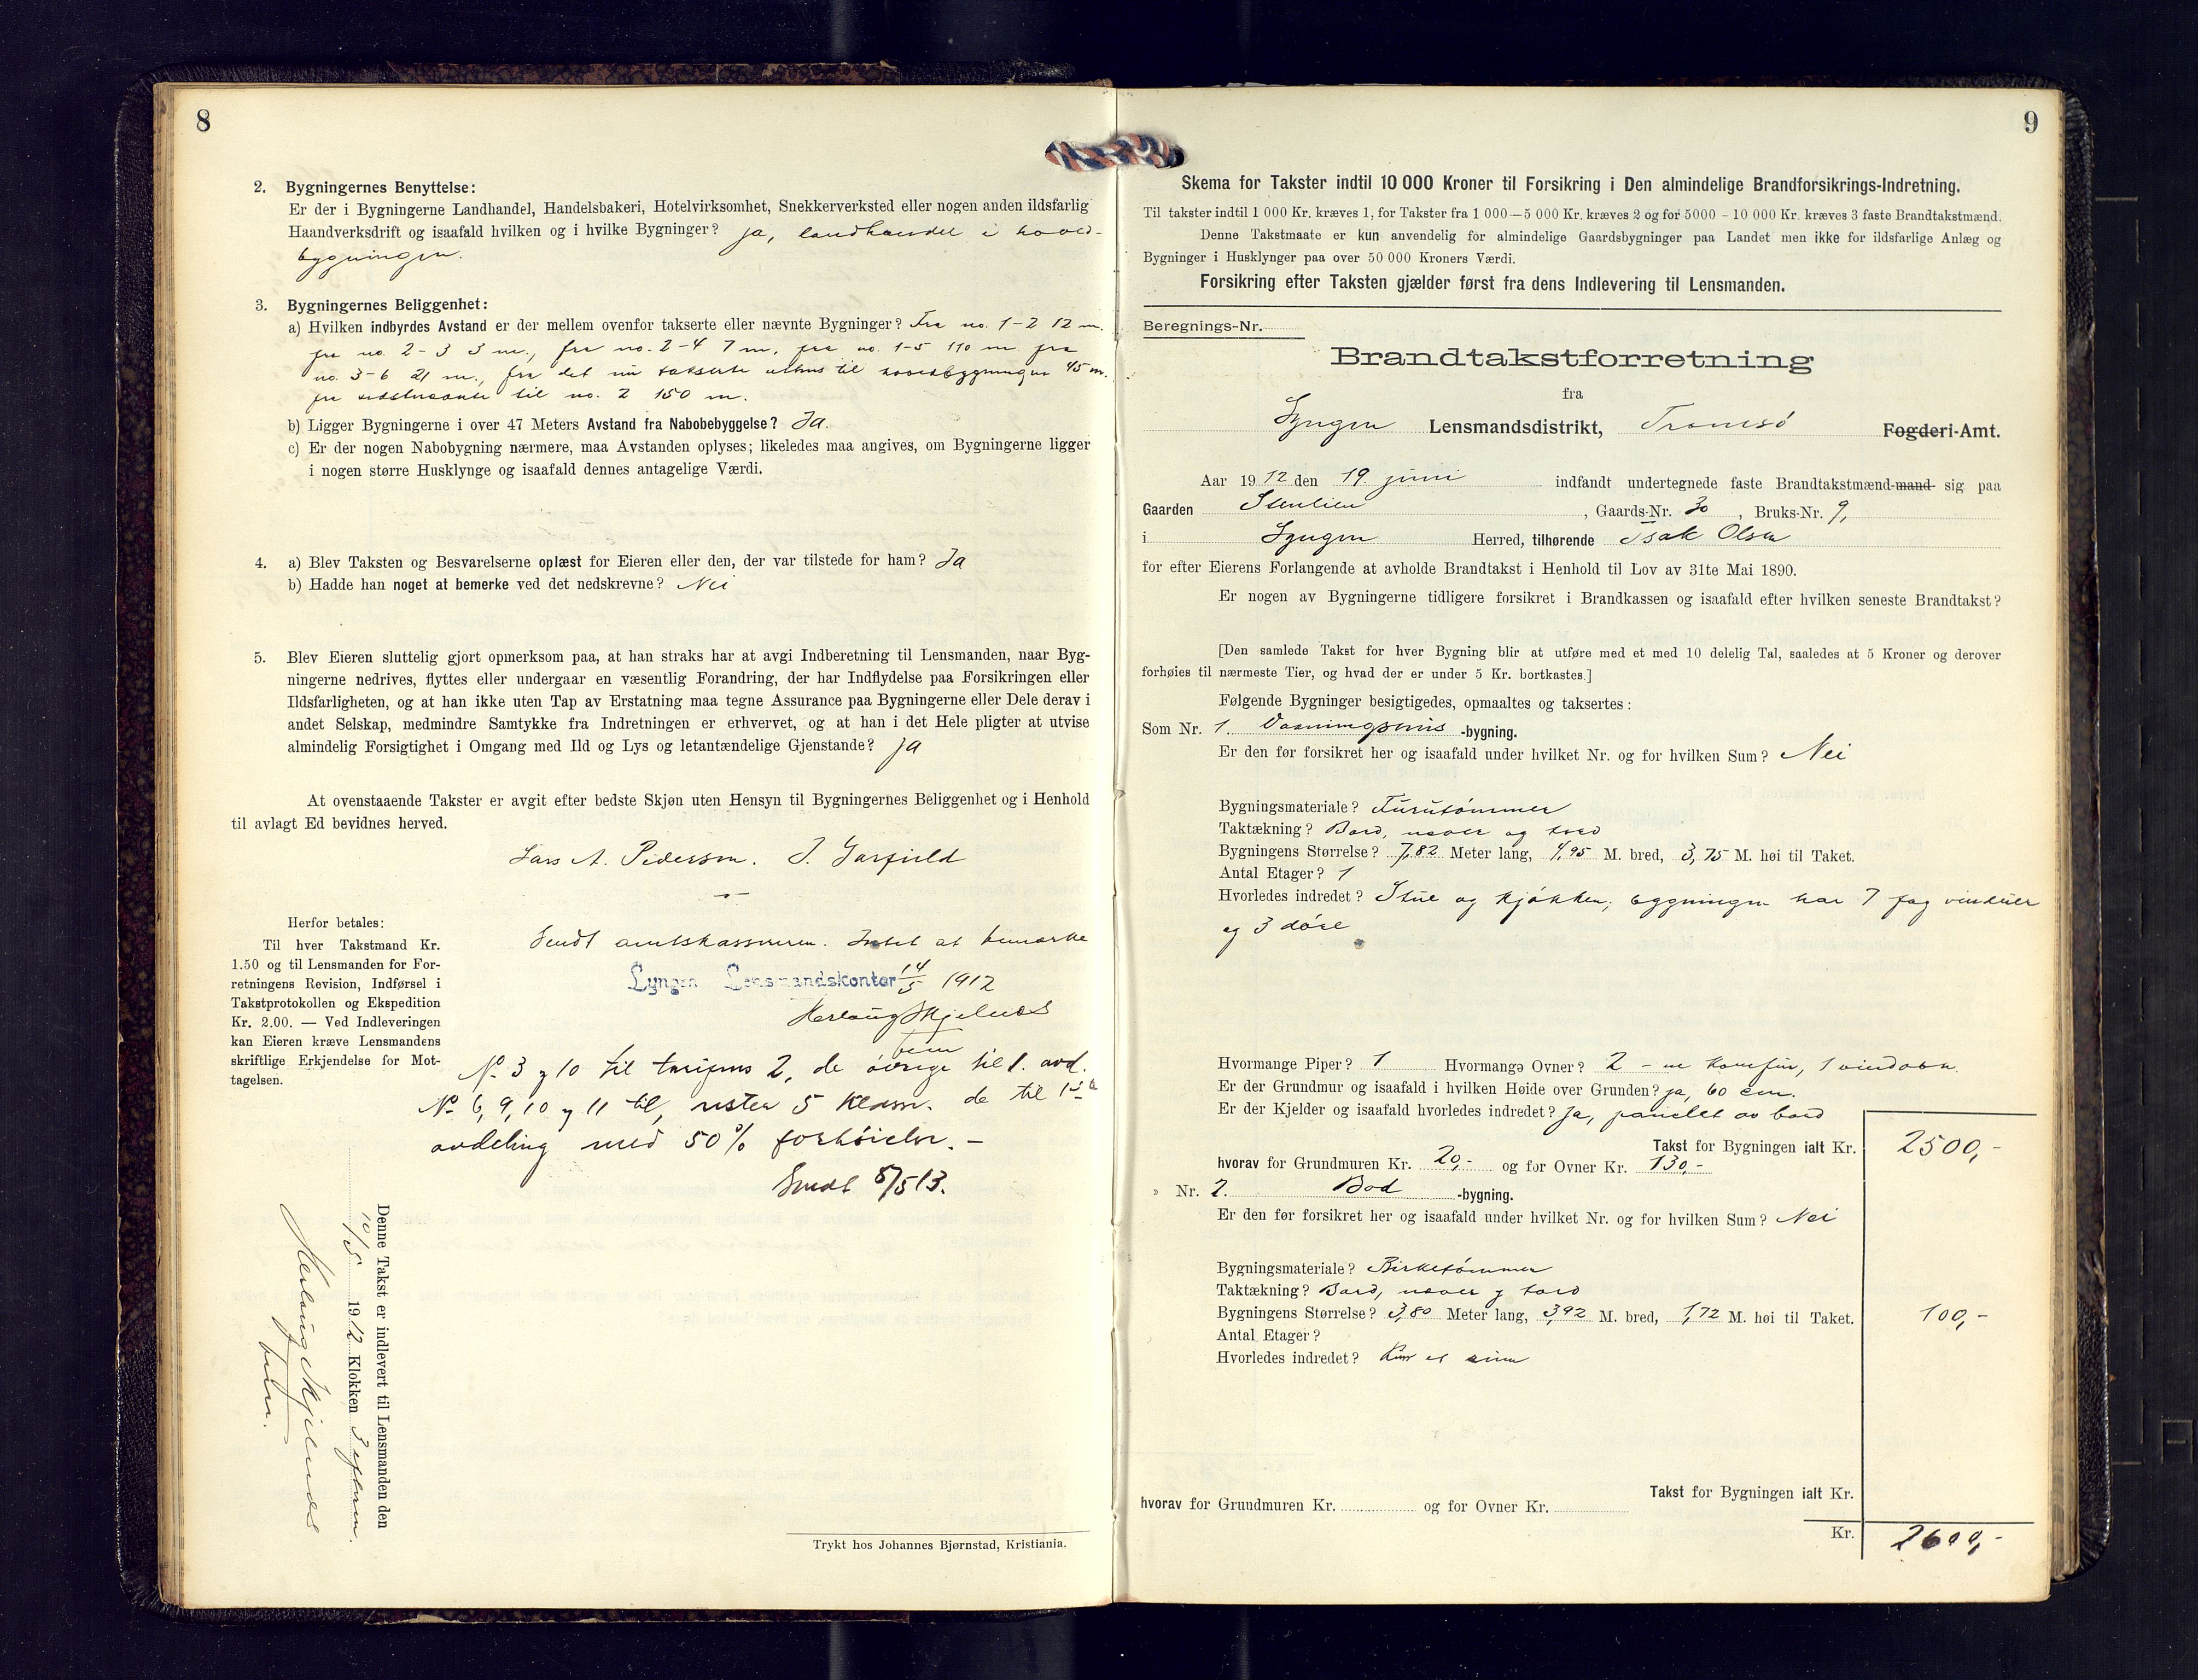 8
2. Bygningernes Benyttelse:
Er der i Bygningerne Landhandel, Handelsbakeri, Hotelvirksomhet, Snekkerverksted eller nogen anden ildsfarlig
Haandverksdrift og isaafald hvilken og i hvilke Bygninger? ja, landhandel i hoved-
bygningen.
3. Bygningernes Beliggenhet:
a) Hvilken indbyrdes Avstand er der mellem ovenfor takserte eller nævnte Bygninger? Fra no. 1-2 12 m.
fra no. 2-3 3 m., fra no. 2-4 7 m, fra no. 1-5 110 m fra
no. 3-6 21 m., fra det nu takserte uthus til hovedbygningen 45 m.
fra sidstnævnte til no. 2 150 m.
b) Ligger Bygningerne i over 47 Meters Avstand fra Nabobebyggelse? Ja.
c) Er der nogen Nabobygning nærmere, maa Avstanden oplyses; likeledes maa angives, om Bygningerne ligger
i nogen større Husklynge og isaafald dennes antagelige Værdi.
4. a) Blev Taksten og Besvarelserne oplæst for Eieren eller den, der var tilstede for ham? Ja
b) Hadde han noget at bemerke ved det nedskrevne? Nei
5. Blev Eieren sluttelig gjort opmerksom paa, at han straks har at avgi Indberetning til Lensmanden, naar Byg-
ningerne nedrives, flyttes eller undergaar en væsentlig Forandring, der har Indflydelse paa Forsikringen eller
Ildsfarligheten, og at han ikke uten Tap av Erstatning maa tegne Assurance paa Bygningerne eller Dele derav i
andet Selskap, medmindre Samtykke fra Indretningen er erhvervet, og at han i det Hele pligter at utvise
almindelig Forsigtighet i Omgang med Ild og Lys og letantændelige Gjenstande? Ja
At ovenstaaende Takster er avgit efter bedste Skjøn uten Hensyn til Bygningernes Beliggenhet og i Henhold
til avlagt Ed bevidnes herved.
Lars A. Pedersen. J. Garfield
Herfor betales:
Til hver Takstmand Kr.
1.50 og til Lensmanden for For-
retningens Revision, Indførsel i
Takstprotokollen og Ekspedition
Kr. 2.00. — Ved Indleveringen
kan Eieren kræve Lensmandens
skriftlige Erkjendelse for Mot-
tagelsen.
Sendt amtskassereren. Intet at bemærke
Lyngen Lensmandskontor 14/5 1912
Herlaug Skjelnes
bem
No 3 og 10 til tarifens 2, de øvrige til 1. avd.
No 6, 9, 10 og 11 til, resten 5 klasse. de til 1ste
avdeling med 50% forhøielse. —
Sendt 8/5 13.
Denne Takst er indlevert til Lensmanden den
10/5 1912 Klokken 3 efterm.
Herlaug Skjelnes
Trykt hos Johannes Bjørnstad, Kristiania.
9
Skema for Takster indtil 10 000 Kroner til Forsikring i Den almindelige Brandforsikrings-Indretning.
Til takster indtil 1 000 Kr. kræves 1, for Takster fra 1 000—5 000 Kr. kræves 2 og for 5000 - 10 000 Kr. kræves 3 faste Brandtakstmænd.
Denne Takstmaate er kun anvendelig for almindelige Gaardsbygninger paa Landet men ikke for ildsfarlige Anlæg og
Bygninger i Husklynger paa over 50 000 Kroners Værdi.
Forsikring efter Taksten gjælder først fra dens Indlevering til Lensmanden.
Beregnings-Nr.
Brandtakstforretning
fra
Lyngen Lensmandsdistrikt, Tromsø Fogderi-Amt.
Aar 1912 den 19. juni indfandt undertegnede faste Brandtakstmænd-mand sig paa
Gaarden Stenlien, Gaards-Nr. 30, Bruks-Nr. 9,
i Lyngen Herred, tilhørende Isak Olsen
for efter Eierens Forlangende at avholde Brandtakst i Henhold til Lov av 31te Mai 1890.
Er nogen av Bygningerne tidligere forsikret i Brandkassen og isaafald efter hvilken seneste Brandtakst?
[Den samlede Takst for hver Bygning blir at utføre med et med 10 delelig Tal, saaledes at 5 Kroner og derover
forhøies til nærmeste Tier, og hvad der er under 5 Kr. bortkastes.]
Følgende Bygninger besigtigedes, opmaaltes og taksertes:
Som Nr. 1. Vaaningshus -bygning.
Er den før forsikret her og isaafald under hvilket Nr. og for hvilken Sum? Nei
Bygningsmateriale? Furutømmer
Taktækning? Bord, næver og torv
Bygningens Størrelse? 7,82 Meter lang, 4,95 M. bred, 3,75 M. høi til Taket.
Antal Etager? 1
Hvorledes indredet? Stue og kjøkken; bygningen har 7 fag vinduer
og 3 døre
Hvormange Piper? 1 Hvormange Ovner? 2 - en komfur, 1 vindovn.
Er der Grundmur og isaafald i hvilken Høide over Grunden? ja, 60 cm.
Er der Kjelder og isaafald hvorledes indredet? Ja, panelet av bord
Takst for Bygningen ialt Kr. 2500,-
hvorav for Grundmuren Kr. 20,- og for Ovner Kr. 130,-
» Nr. 2. Bod -bygning.
Er den før forsikret her og isaafald under hvilket Nr. og for hvilken Sum? Nei
Bygningsmateriale? Birketømmer
Taktækning? Bord, næver og torv
Bygningens Størrelse? 3,80 Meter lang, 3,92 M. bred, 1,72 M. høi til Taket. 100,-
Antal Etager?
Hvorledes indredet? Kun et rum
Takst for Bygningen ialt Kr.
hvorav for Grundmuren Kr. og for Ovner Kr.
Kr. 2600,-